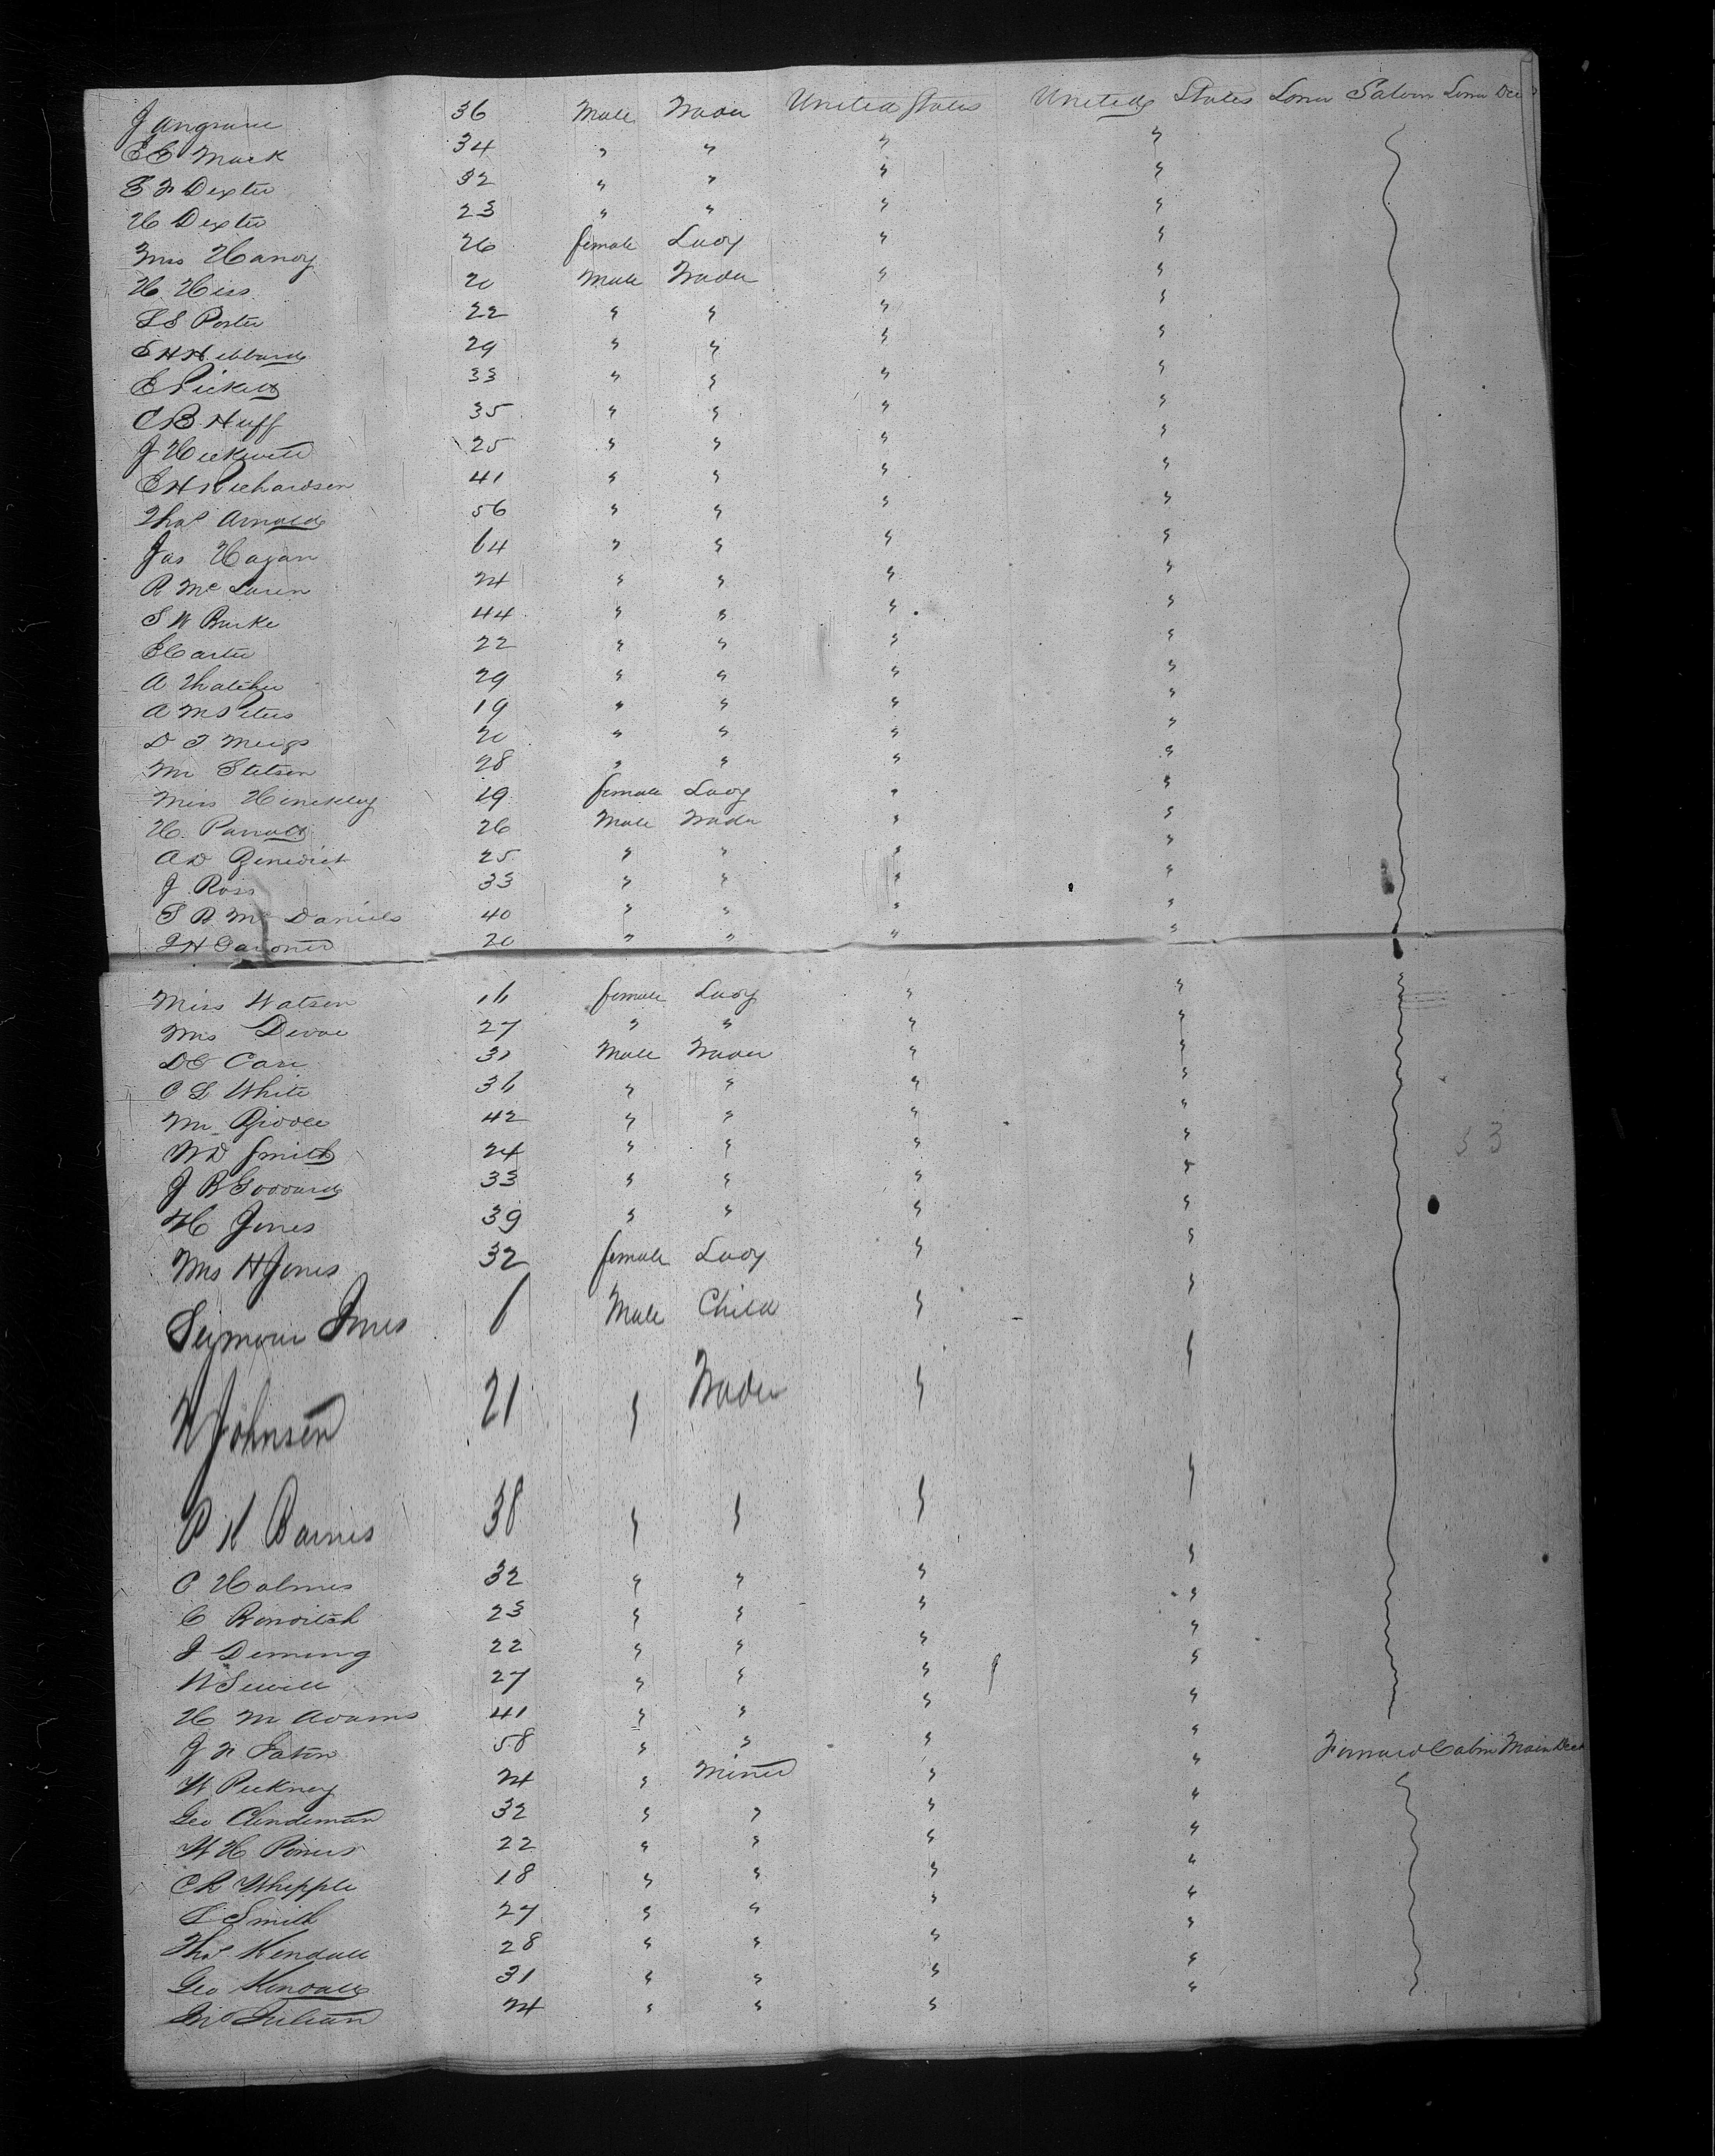 J Angrave 36 Male Trader United States United States Lower Saloon Lower Deck
E E Mack 34 " " " "
S F Dexter 32 " " " "
H Dexter 23 " " " "
Mrs Handy 26 female Lady " "
H Hiss 20 Male Trader " "
L S Porter 22 " " " "
E H Hibbard 29 " " " "
E Pickett 33 " " " "
C B Huff 35 " " " "
J 25 " " " "
E H Richardson 41 " " " "
Thos Arnold 56 " " " "
Jas Hagan 64 " " " "
R McLaren 24 " " " "
S W Burke 44 " " " "
E Carter 22 " " " "
A Thatcher 29 " " " "
A M Peters 19 " " " "
D T Meigs 20 " " " "
Mr Stetson 28 " " " "
Miss Hinckley 19 female Lady " "
H. Parrott 26 Male Trader " "
A D Benedict 25 " " " "
J Ross 33 " " " "
S R McDaniels 40 " " " "
J H Gardner 20 " " " "
Miss Watson 16 female Lady " "
Mrs Devoe 27 " " " "
D E Case 31 Male Trader " "
C L White 36 " " " "
Mr Biddle 42 " " " "
W D Smith 24 " " " "
J B Goddard 33 " " " "
H Jones 39 " " " "
Mrs H Jones 32 female Lady " "
Seymour Jones 6 Male Child " "
W Johnson 21 " Trader " "
P H Barnes 38 " " " "
C Holmes 32 " " " "
C 23 " " " "
J Deming 22 " " " "
W Sewell 27 " " " "
H M Adams 41 " " " "
J F Eaton 58 " " " " Forward Cabin Main Deck
W Peckney 24 " Miner " "
Geo Clendeman 32 " " " "
W H Powers 22 " " " "
C R Whipple 18 " " " "
L Smith 27 " " " "
Thos Kendall 28 " " " "
Geo Kendall 31 " " " "
Julian 24 " " " "
33